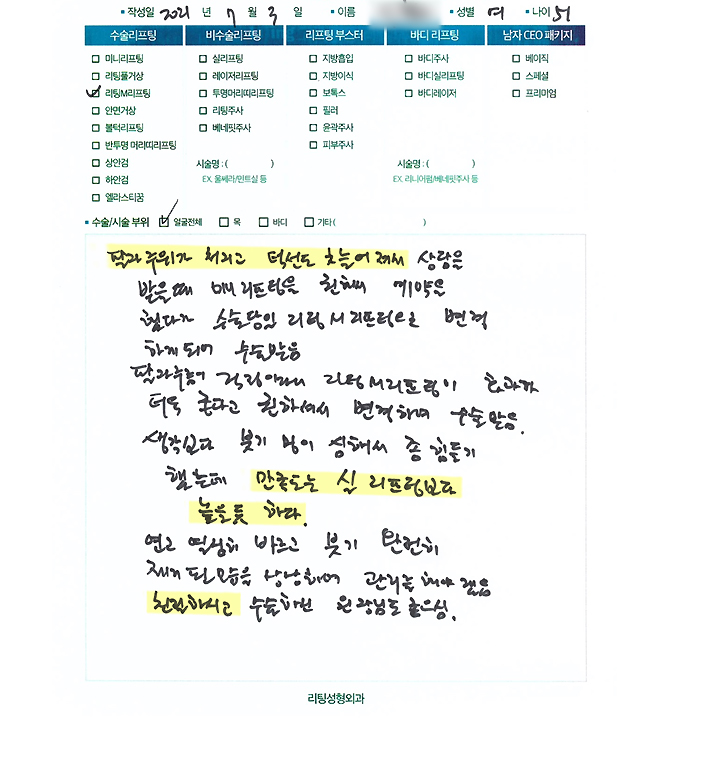 작성일 2021 년 7 월 3 일 이름 성별 여 나이 51
수술리프팅 비수술리프팅 리프팅 부스터 바디 리프팅 남자 CEO 패키지
미니리프팅 실리프팅 지방흡입 바디주사 베이직
리팅풀거상 레이저리프팅 지방이식 바디실리프팅 스페셜
리팅M리프팅 투명머리띠리프팅 보톡스 바디레이저 프리미엄
안면거상 리팅주사 필러
볼턱리프팅 베네핏주사 윤곽주사
반투명 머리띠리프팅 피부주사
상안검 시술명 : ( ) 시술명 : ( )
하안검 EX. 울쎄라/민트실 등 EX. 리니어펌/베네핏주사 등
엘라스티꿈
수술/시술 부위 얼굴전체 목 바디 기타 ( )
팔자주위가 처지고 턱선도 늘어져서 상담을
받을때 미니리프팅을 권해서 예약을
했다가 수술당일 리팅M리프팅으로 변경
하게되어 수술받음
팔자주름이 걱정이라니 리팅M리프팅이 효과가
더욱 좋다고 권하셔서 변경하여 수술 받음.
생각보다 붓기 멍이 심해서 좀 힘들기
했는데 만족도는 실 리프팅보다
높을듯 하다.
연고 열심히 바르고 붓기 완전히
제거 된모습을 상상하며 관리를 해야 겠음
친절하시고 수술하신 원장님도 좋으심.
리팅성형외과